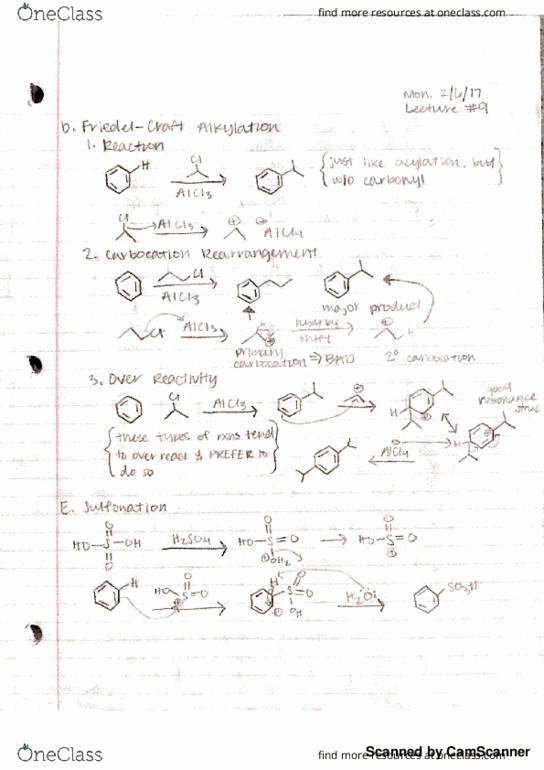 OneClass
find more resources at oneclass.com
Mon. 2/6/17
Lecture #9
D. Friedel-Craft Alkylation
1. Reaction
H
Cl
AlCl3
{just like acylation, but
w/o carbonyl}
Cl
AlCl3
⊕ ⊖
AlCl4
2. Carbocation Rearrangement
Cl
AlCl3
major product
Cl
AlCl3
H
⊕
hydride
shift
⊕
H
primary
carbocation ⇒ BAD
2° carbocation
3. Over Reactivity
good
resonance
struc
Cl
AlCl3
⊕
H
⊕
H
⊕
{these types of rxns tend
to over react & PREFER to
do so}
⊖
AlCl4
E. Sulfonation
O
HO-S-OH
O
H2SO4
O
HO-S=O
⊕OH2
O
HO-S=O
⊕
H
O
HO-S=O
⊕
H
O
S=O
OH
⊕
H2O:
SO3H
OneClass
find more resources at oneclass.com
Scanned by CamScanner